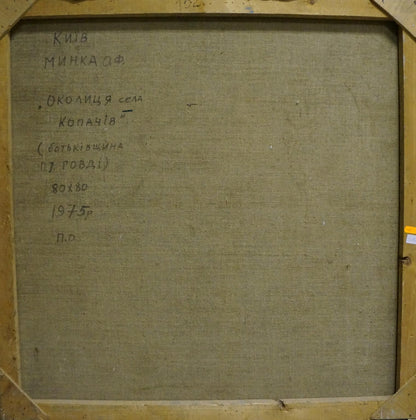 КИЇВ
МИНКА О.Ф.
„ОКОЛИЦЯ села
КОПАЧІВ"
(батьківщина
РОВДІ)
80х80
1975р
п.о.